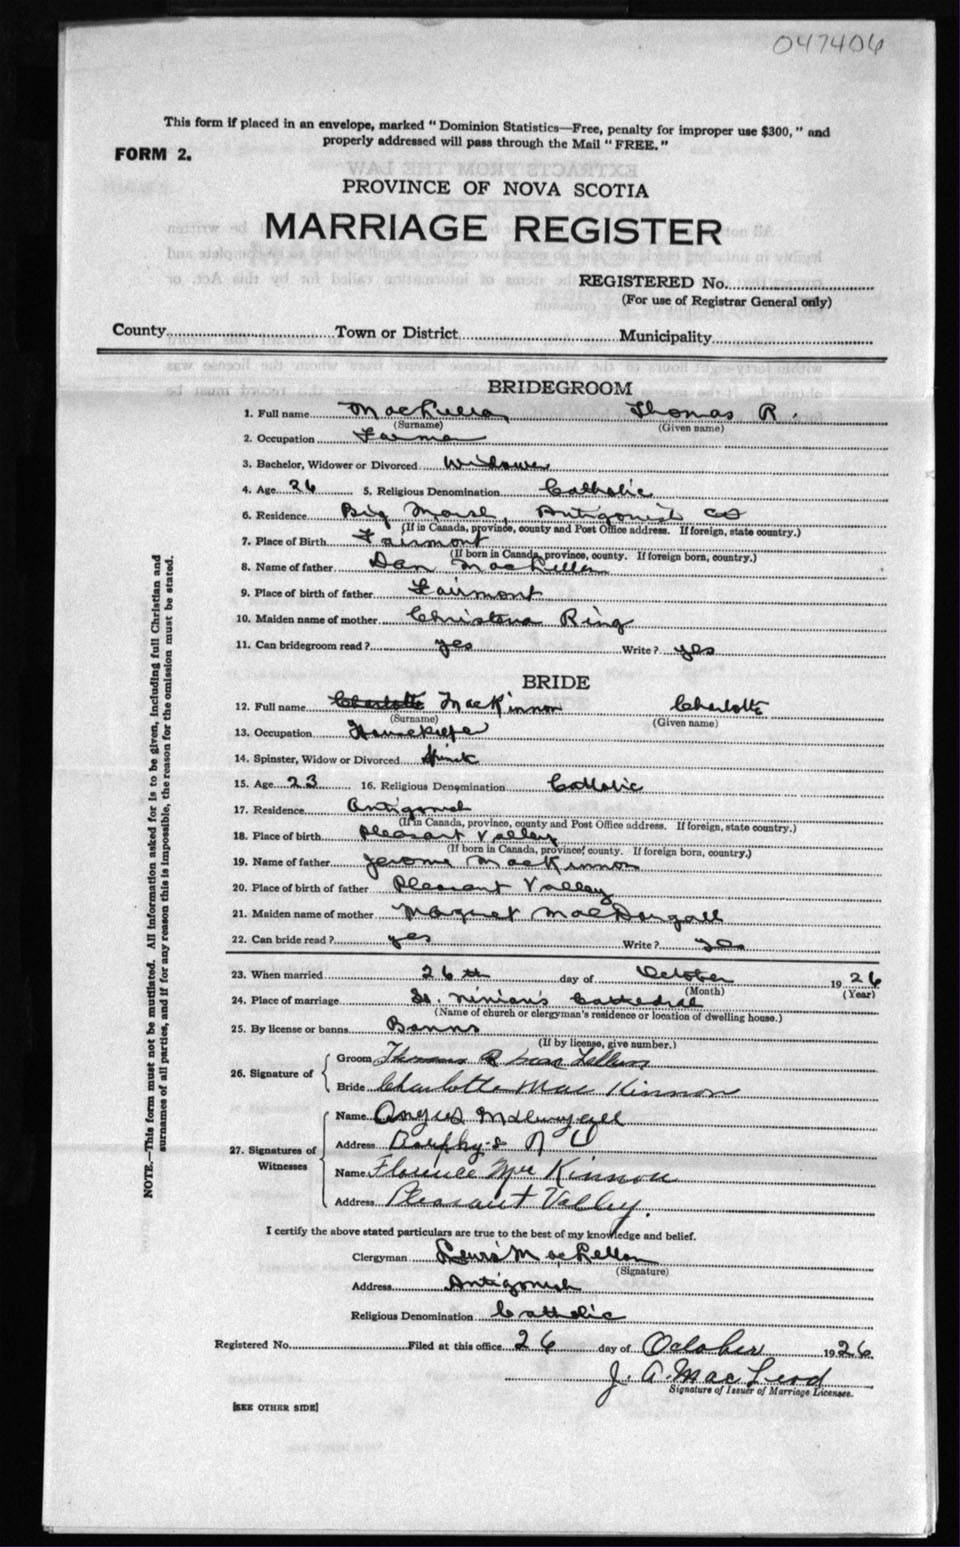 047406
This form if placed in an envelope, marked "Dominion Statistics—Free, penalty for improper use $300," and
properly addressed will pass through the Mail "FREE."
FORM 2.
PROVINCE OF NOVA SCOTIA
MARRIAGE REGISTER
REGISTERED No.
(For use of Registrar General only)
County Town or District Municipality
BRIDEGROOM
1. Full name MacLellan, Thomas R.
(Surname) (Given name)
2. Occupation Farmer
3. Bachelor, Widower or Divorced Widower
4. Age 26 5. Religious Denomination Catholic
6. Residence Big Marsh, Antigonish Co
(If in Canada, province, county and Post Office address. If foreign, state country.)
7. Place of Birth Fairmont
(If born in Canada, province, county. If foreign born, country.)
8. Name of father Dan MacLellan
9. Place of birth of father Fairmont
10. Maiden name of mother Christena Ring
11. Can bridegroom read? yes Write? yes
BRIDE
12. Full name Charlotte MacKinnon Charlotte
(Surname) (Given name)
13. Occupation Housekeeper
14. Spinster, Widow or Divorced
15. Age 23 16. Religious Denomination Catholic
17. Residence Antigonish
(If in Canada, province, county and Post Office address. If foreign, state country.)
18. Place of birth Pleasant Valley
(If born in Canada, province, county. If foreign born, country.)
19. Name of father Jerome MacKinnon
20. Place of birth of father Pleasant Valley
21. Maiden name of mother Margaret MacDougall
22. Can bride read? yes Write? yes
23. When married 26th day of October 1926
(Month) (Year)
24. Place of marriage St. Ninian's Cathedral
(Name of church or clergyman's residence or location of dwelling house.)
25. By license or banns Banns
(If by license, give number.)
26. Signature of
Groom Thomas R MacLellan
Bride Charlotte MacKinnon
27. Signatures of Witnesses
Name Angus McDougall
Address N S
Name Florence MacKinnon
Address Pleasant Valley.
I certify the above stated particulars are true to the best of my knowledge and belief.
Clergyman Lewis MacLellan
(Signature)
Address Antigonish
Religious Denomination Catholic
Registered No. Filed at this office 26 day of October 1926.
J. A. MacLeod
Signature of Issuer of Marriage Licenses.
[SEE OTHER SIDE]
NOTE.—This form must not be mutilated. All information asked for is to be given, including full Christian and
surnames of all parties, and if for any reason this is impossible, the reason for the omission must be stated.